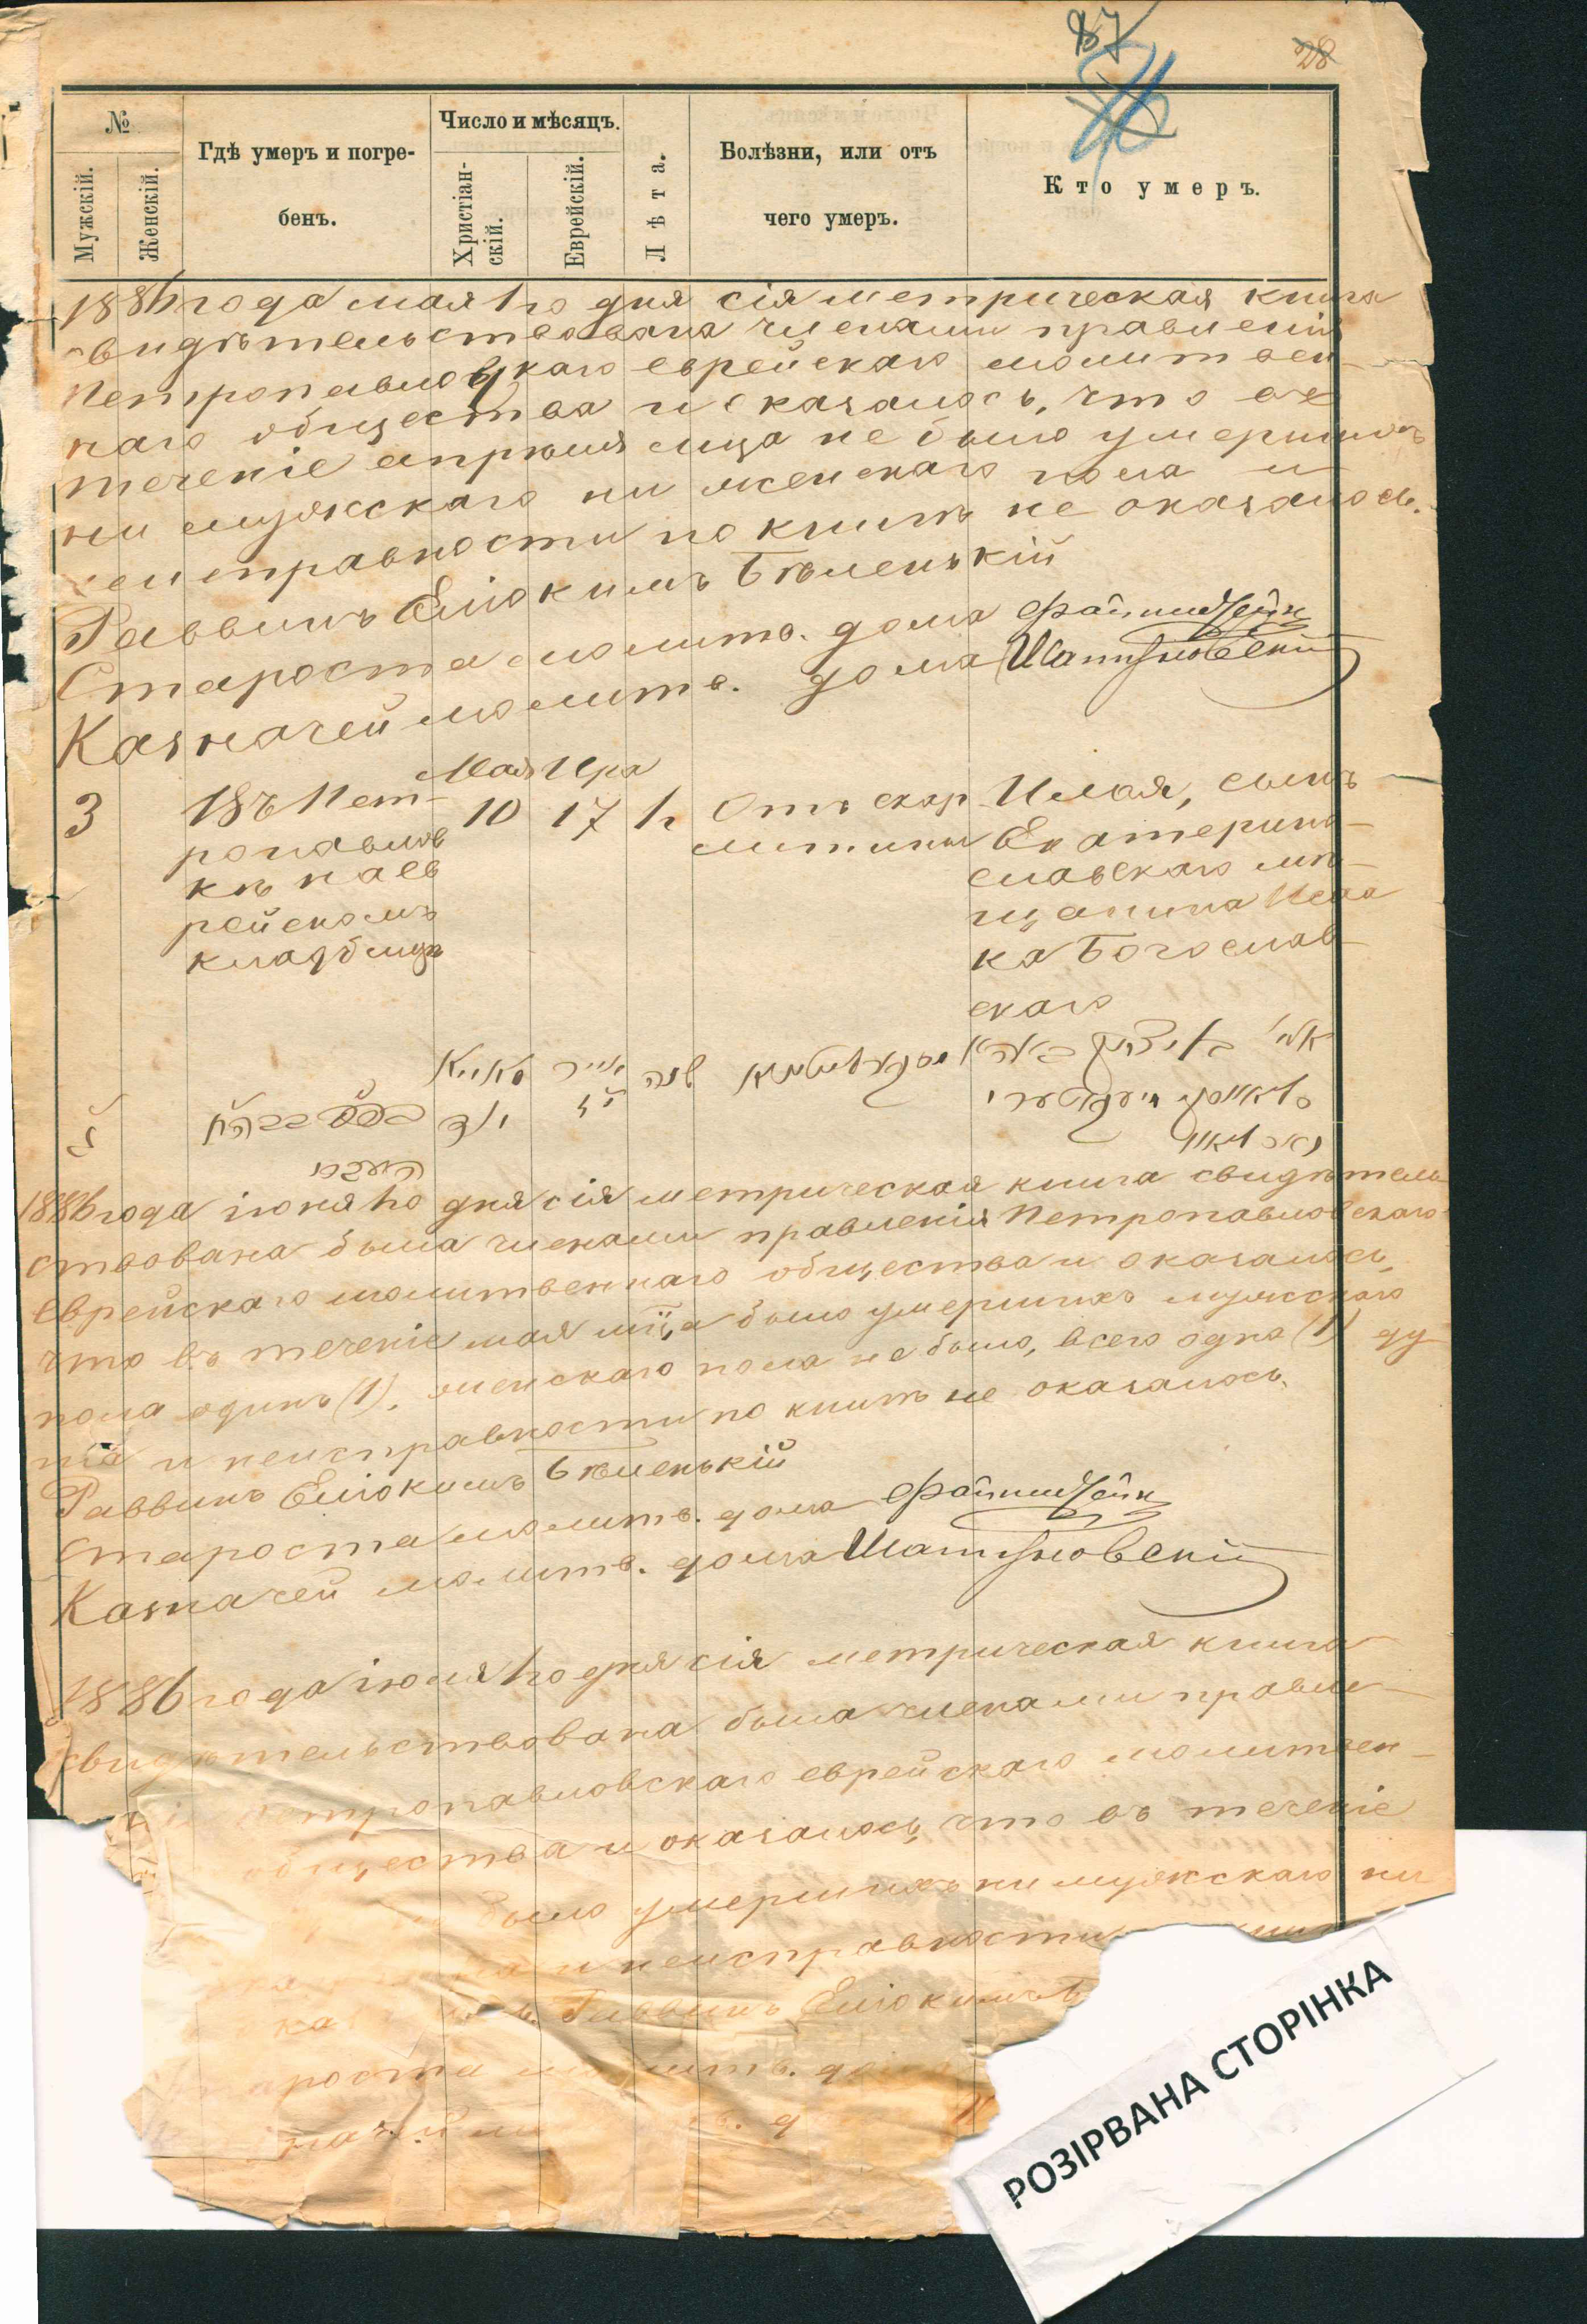 87
28
№
Мужскій.
Женскій.
Гдѣ умеръ и погре-
бенъ.
Число и мѣсяцъ.
Христіан-
скій.
Еврейскій.
Лѣта.
Болѣзни, или отъ
чего умеръ.
Кто умеръ.
1886 года мая 1го дня сія метрическая книга
свидѣтельствована членами правленія
Петропавловскаго еврейскаго молитвен-
наго общества и оказалось, что въ
теченіе апрѣля мца не было умершихъ
ни мужскаго ни женскаго пола и
неисправности по книгѣ не оказалось.
Раввинъ Еліокимъ Бѣленькій
Староста молитв. дома
Казначей молитв. дома Шатуновскій
3
Въ Пет-
ропавлов
кѣ на ев
рейскомъ
кладбищѣ
Мая
10
Ира
17
1г
Отъ скар
латины
Илья, сынъ
Екатерино-
славскаго мѣ-
щанина Исаа
ка Богослав-
скаго
1886 года іюня 1го дня сія метрическая книга свидѣтель
ствована была членами правленія Петропавловскаго
еврейскаго молитвеннаго общества и оказалось,
что въ теченіе мая мца было умершихъ мужскаго
пола одинъ (1), женскаго пола не было, всего одна (1) ду
ша и неисправности по книгѣ не оказалось.
Раввинъ Еліокимъ Бѣленькій
Староста молитв. дома
Казначей молитв. дома Шатуновскій
1886 года іюля 1го дня сія метрическая книга
свидѣтельствована была членами правле-
нія Петропавловскаго еврейскаго молитвен-
общества и оказалось, что въ теченіе
было умершихъ ни мужскаго ни
и неисправности
Раввинъ Еліокимъ
староста молитв. дома
РОЗІРВАНА СТОРІНКА